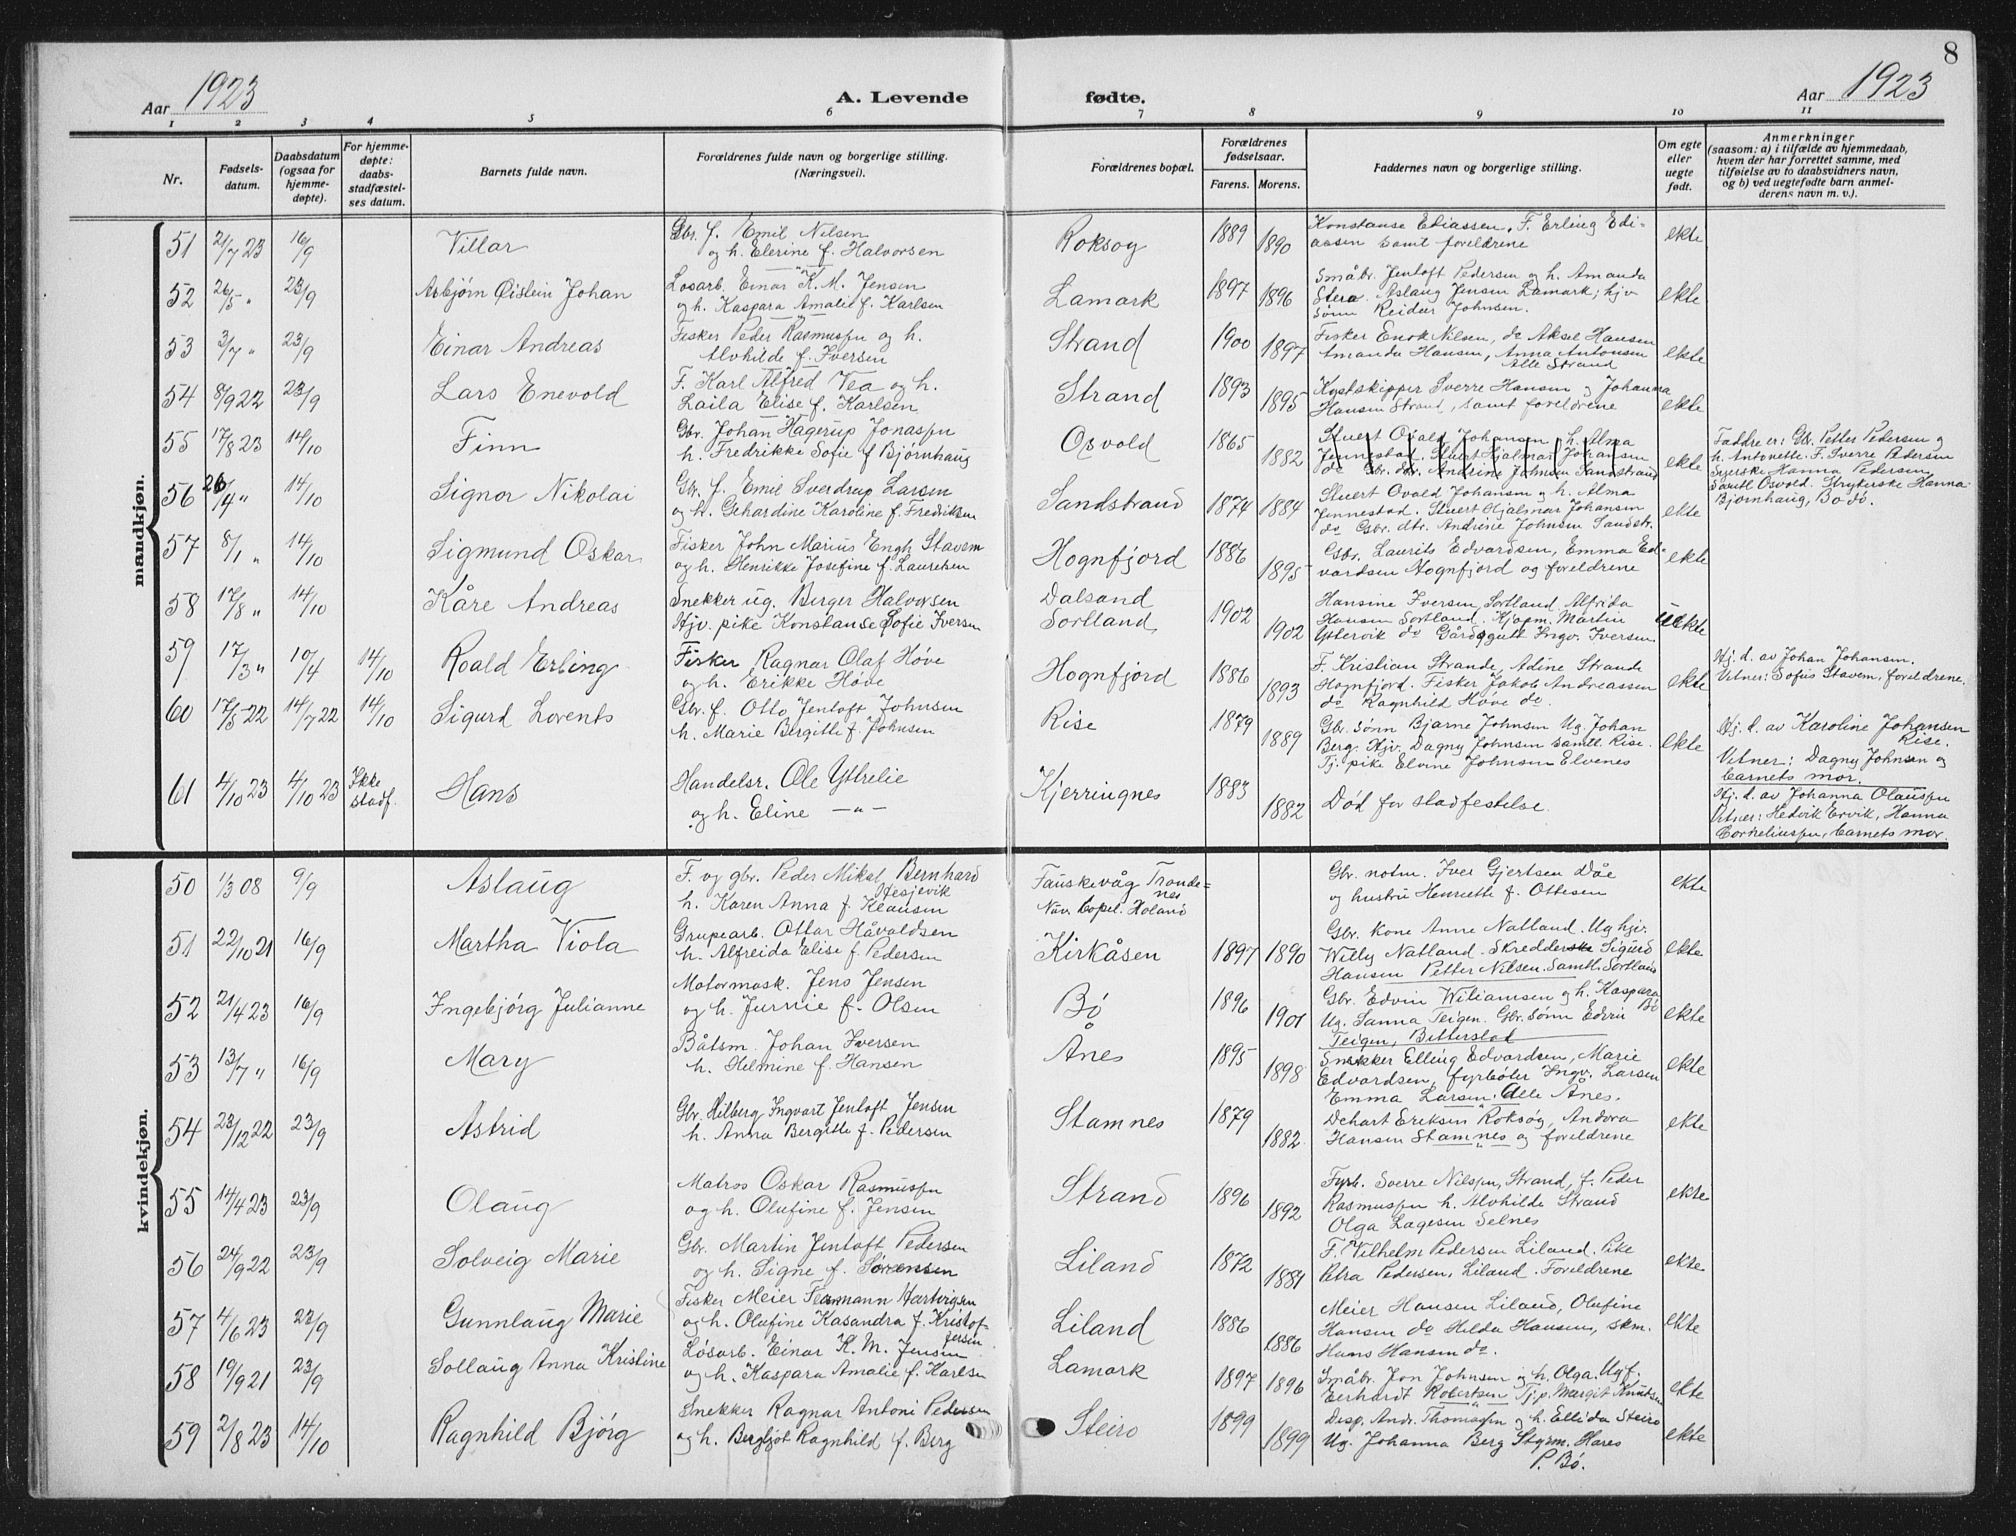 8
Aar 1923
A. Levende
fødte.
Aar 1923
1 2 3 4 5 6 7 8 9 10 11
Nr.
Fødsels-
datum.
Daabsdatum
(ogsaa for
hjemme-
døpte).
For hjemme-
døpte:
daabs-
stadfæstel-
ses datum.
Barnets fulde navn.
Forældrenes fulde navn og borgerlige stilling.
(Næringsvei).
Forældrenes bopæl.
Forældrenes
fødselsaar.
Farens. Morens.
Faddernes navn og borgerlige stilling.
Om egte
eller
uegte
født.
Anmerkninger
(saasom: a) i tilfælde av hjemmedaab,
hvem der har forrettet samme, med
tilføielse av to daabsvidners navn,
og b) ved uegtefødte barn anmel-
derens navn m. v.).
mandkjøn.
51 21/7 23 16/9 Villar
Gbr. f. Emil Nilsen
og h. Elerine f. Halvorsen
Roksøg 1889 1890
Konstanse Ediassen, F. Erling Edi-
assen samt foreldrene
ekte
52 26/5 " 23/9 Asbjørn Øistein Johan
Løsarb. Einar K. M. Jensen
og h. Kaspara Amalie f. Karlsen
Lamark 1897 1896
Småbr. Jentoft Pedersen og h. Amanda
Stera. Aslaug Jensen Lamark; hjv
Sønn Reidar Johnsen.
ekte
53 3/7 " 23/9 Einar Andreas
Fisker Peder Rasmussen og h.
Alvhilde f. Iversen
Strand 1900 1897
Fisker Enok Nilsen, do Aksel Hansen
Amanda Hansen, Anna Antonsen
Alle Strand
ekte
54 8/9 22 23/9 Lars Enevold
F. Karl Alfred Vea og h.
Laila Elise f. Karlsen
Strand 1893 1895
Kystskipper Sverre Hansen og Johanna
Hansen Strand, samt foreldrene
ekte
55 17/8 23 14/10 Finn
Gbr. Johan Hagerup Jonassen
h. Fredrikke Sofie f Bjørnhaug
Osvold 1865 1882
Stuert Ovald Johansen og h. Alma
Jennestad. Stuert Hjalmar Johansen
do Gbr. dtr. Andrine Johnsen Sandstrand
ekte
Faddre er: Gbr. Petter Pedersen og
h. Antonette. F. Sverre Pedersen
Syerske Hanna Pedersen
Samtl Osvold. Stryterske Hanna
Bjørnhaug, Bodø.
56 26/4 " 14/10 Signor Nikolai
Gbr. f. Emil Sverdrup Larsen
og h. Gehardine Karoline f. Fredriksen
Sandstrand 1874 1884
Stuert Ovald Johansen og h. Alma
Jennestad. Stuert Hjalmar Johansen
do Gbr. dtr. Andrine Johnsen Sandstr.
ekte
57 8/1 " 14/10 Sigmund Oskar
Fisker John Marius Engh Stavem
og h. Henrikke Josefine f. Lauretsen
Hognfjord 1886 1895
Gbr. Laurits Edvardsen, Emma Ed-
vardsen Hognfjord og foreldrene
ekte
58 17/8 " 14/10 Kåre Andreas
Snekker ug. Berger Halvorsen
Hjv. pike Konstanse Sofie Iversen
Dalsand
Sortland 1902 1902
Hansine Iversen, Sortland. Alfrida
Hansen Sortland. Kjøpm. Martin
Ytlervik do Gårdsgutt Ingv. Iversen
Uekte
59 17/3 " 10/4 14/10 Roald Erling
Fisker Ragnar Olaf Høve
og h. Erikke Høve
Hognfjord 1886 1893
F. Kristian Strande, Adine Strande
Hognfjord. Fisker Jakob Andreassen
do Ragnhild Høve do.
ekte
Hj. d. av Johan Johansen.
Vitner: Sofus Stavem, foreldrene.
60 17/5-22 14/7 22 14/10 Sigurd Lorents
Gbr. f. Otto Jentoft Johnsen
h. Marie Bergitte f. Johnsen
Rise 1879 1889
Gbr. sønn Bjarne Johnsen Ug. Johan
Berg. Hjv. Dagny Johnsen samtl. Rise.
Tj. pike Elvine Johnsen Elvenes
ekte
Hj. d. av Karoline Johansen
Rise.
Vitner: Dagny Johnsen og
barnets mor.
61 4/10 23 4/10 23 Ikke
stadf.
Hans
Handelsr. Ole Yttrelie
og h. Eline —"—
Kjerringnes 1883 1882
Død for stadfestelse.
Hj. d. av Johanna Olaussen
Vitner: Hedvik Ervik, Hanna
Corneliussen, barnets mor.
kvindekjøn.
50 1/3 08 9/9 Aslaug
F. og gbr. Peder Mikal Bernhard
Hesjevik
h. Karen Anna f. Klausen
Fauskevåg Tronde-
nes
Nuv. bopel. Holand
Gbr. notm. Iver Gjertsen Dåe
og hustru Henriette f. Ottesen
ekte
51 22/10 21 16/9 Martha Viola
Grupearb. Ottar Håvaldsen
h. Alfreida Elise f. Pedersen
Kirkåsen 1897 1890
Gbr. kone Anne Natland. Ug hjv.
Willy Natland. Skredder Sigurd
Hansen Petter Nilsen. Samtl. Sortland
ekte
52 21/4 23 16/9 Ingebjørg Julianne
Motormask. Jens Jensen
og h. Jurvie f. Olsen
Bø 1896 1901
Gbr. Edvin Wiliamsen og h. Kaspara
Bø
Ug. Sanna Teigen. Gbr. sønn Edvin
Teigen, Bitterstad
ekte
53 13/7 " 16/9 Mary
Båtsm. Johan Iversen
h. Helmine f. Hansen
Ånes 1895 1898
Snekker Elling Edvardsen, Marie
Edvardsen, fyrbøter Ingv. Larsen
Emma Larsen. Alle Ånes.
ekte
54 23/12 22 23/9 Astrid
Gbr. Hilberg Ingvart Jentoft Jensen
h. Anna Bergitte f. Pedersen
Stamnes 1879 1882
Dehart Eriksen Roksøg, Andora
Hansen Stamnes og foreldrene
ekte
55 14/4 23 23/9 Olaug
Matros Oskar Rasmussen
og h. Olufine f. Jensen
Strand 1896 1892
Fyrb. Sverre Nilssen, Strand, f. Peder
Rasmussen h. Alvhilde Strand
Olga Lagesen Selnes
ekte
56 24/9 22 23/9 Solveig Marie
Gbr. Martin Jentoft Pedersen
og h. Signe f. Sørensen
Liland 1872 1884
F. Vilhelm Pedersen Liland. Pike
Petra Pedersen, Liland. Foreldrene
ekte
57 4/6 23 23/9 Gunnlaug Marie
Fisker Meier Hartvigsen
og h. Olufine Kasandra f. Kristof-
fersen
Liland 1886 1886
Meier Hansen Liland, Olufine
Hansen do Hilda Hansen, skm.
Hans Hansen do.
ekte
58 19/9 21 23/9 Sollaug Anna Kristine
Løsarb. Einar K. M. Jensen
og h. Kaspara Amalie f. Karlsen
Lamark 1897 1896
Småbr. Jon Johnsen og h. Olga. Ugf.
Eerhardt Robertsen Tj. p. Margit Knutsen
ekte
59 2/8 23 14/10 Ragnhild Bjørg
Snekker Ragnar Antoni Pedersen
og h. Bergljot Ragnhild f. Berg
Steiro 1899 1899
Disp. Andr. Thomassen og h. Ellida Steiro
Ug. Johanna Berg Styrm. Hares
P. Bø.
ekte